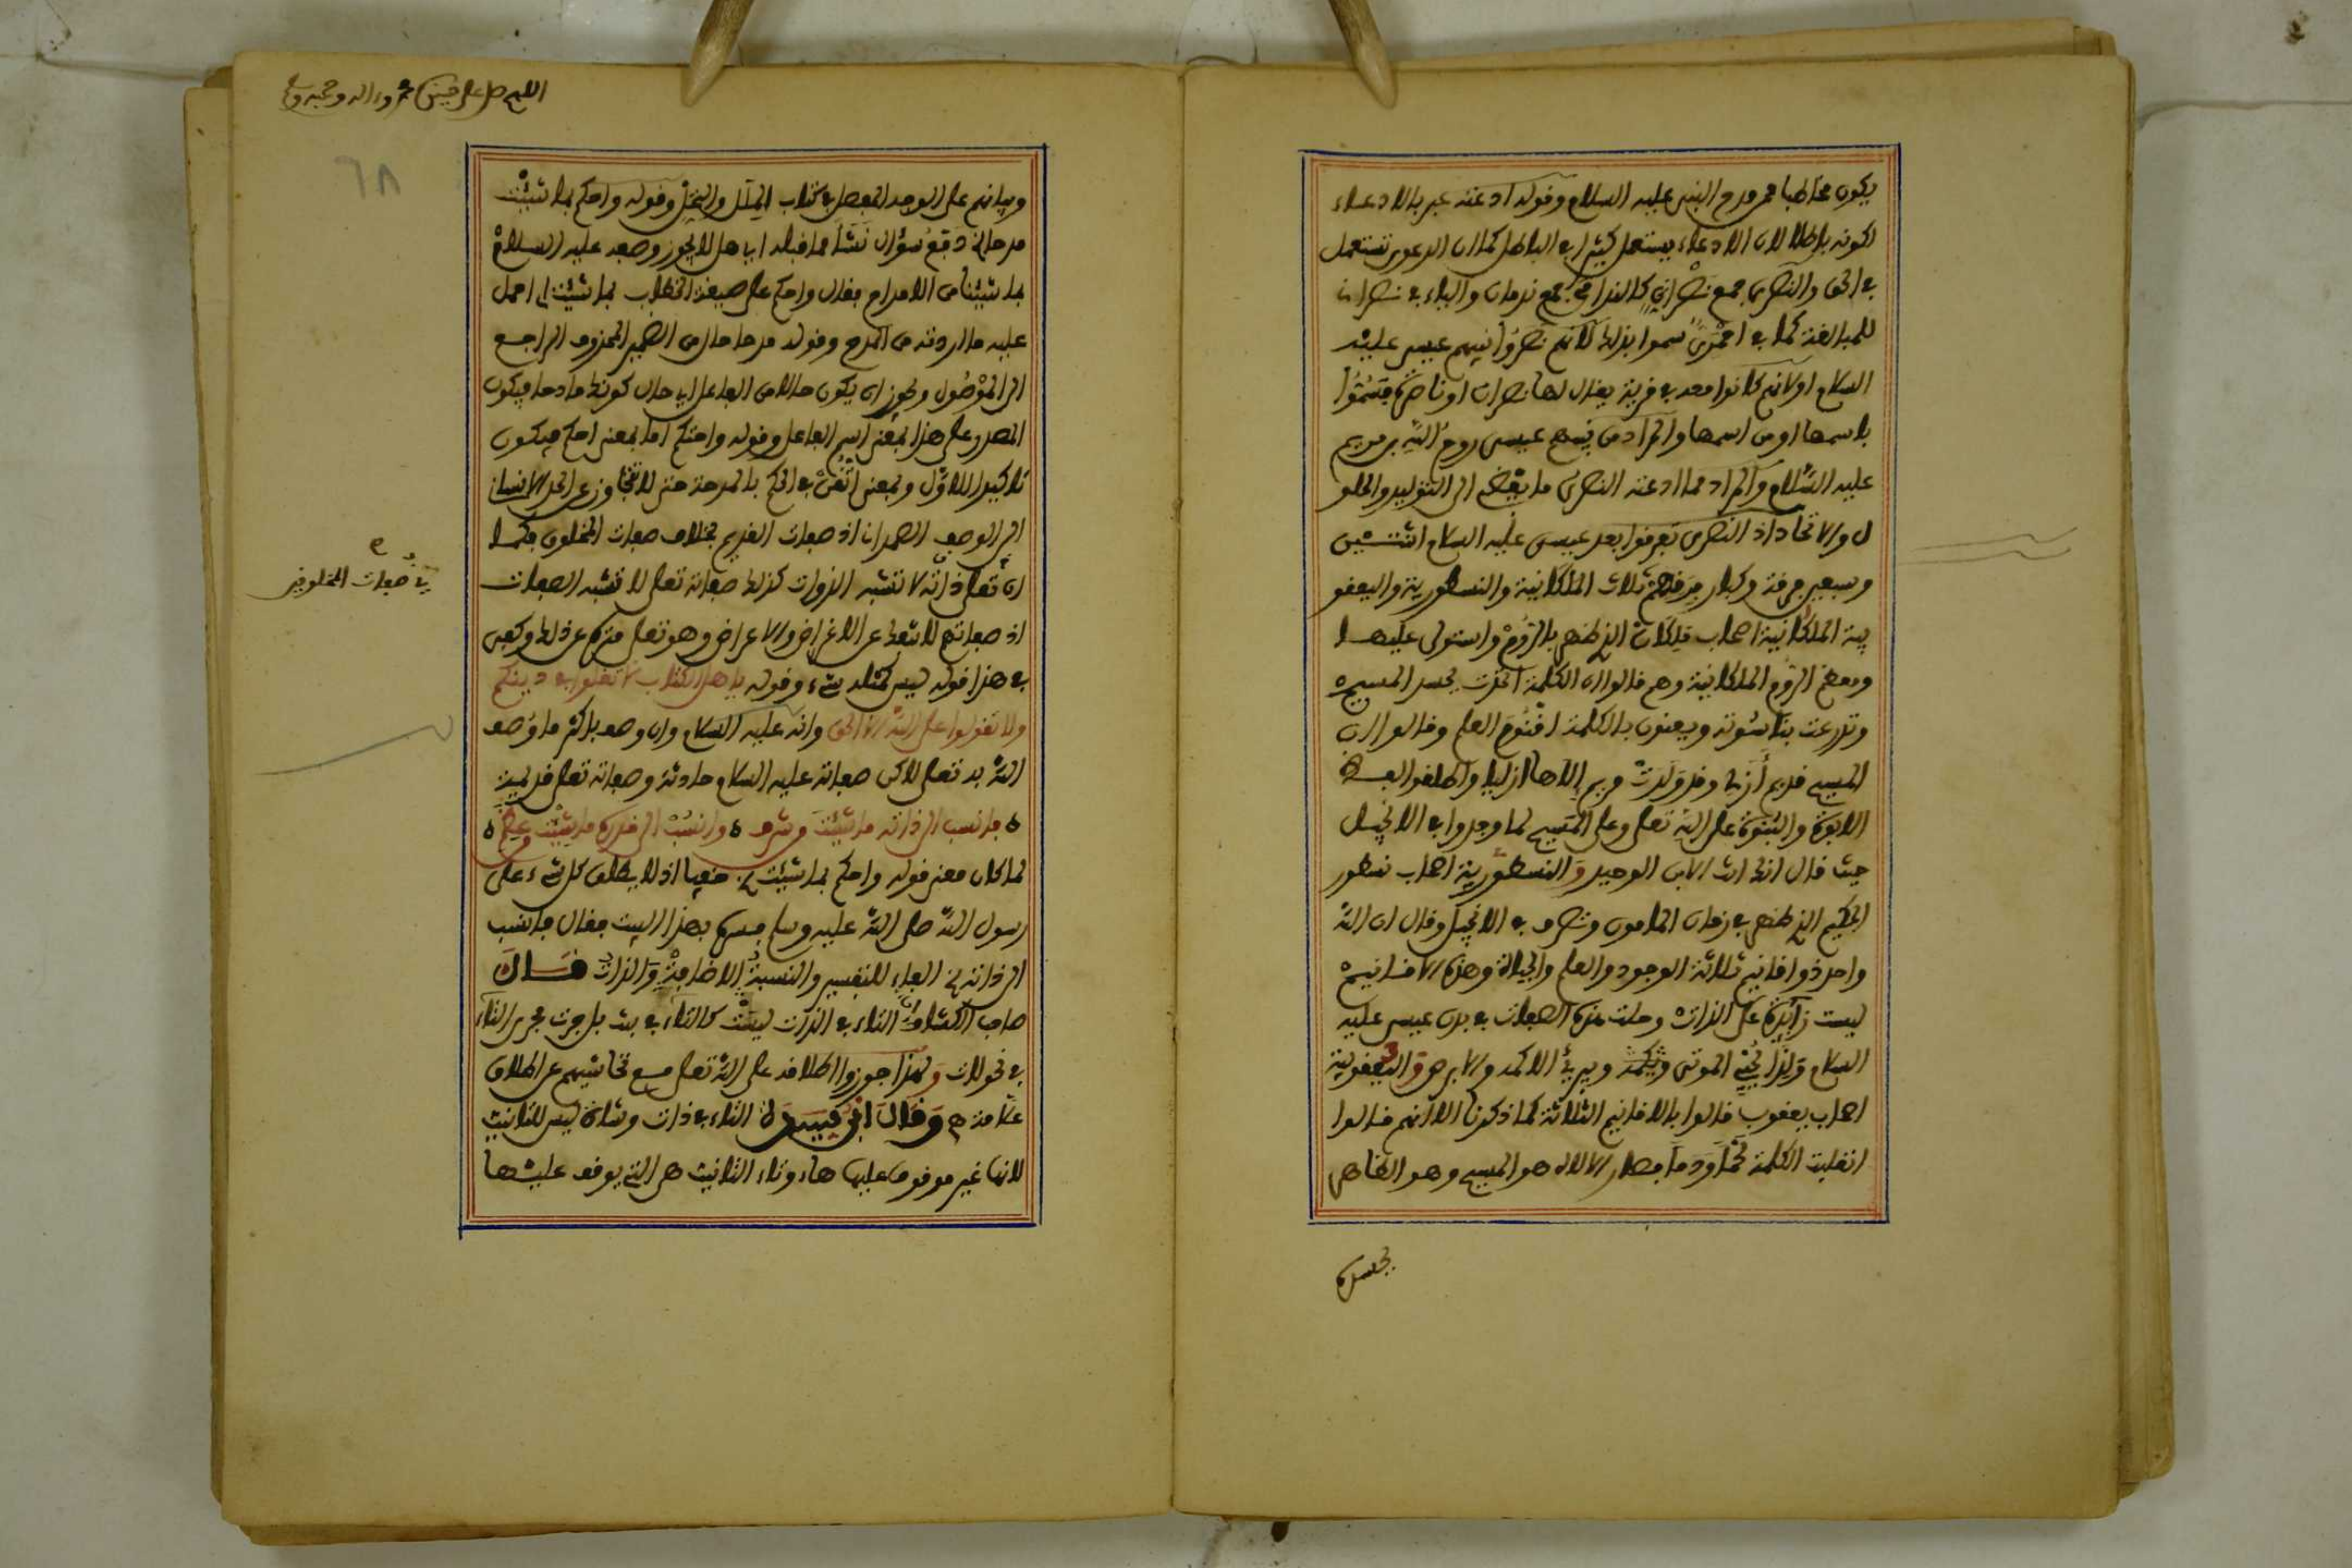 يكون مخاطبا ممن مدح النبي عليه السلام وقوله ادعته عبر بالادعاء
لكونه باطلا لان الادعاء يستعمل كثيرا في الباطل كما ان الدعوى تستعمل
في الحق والنصرى جمع نصراني كالندامى جمع ندمان والياء في نصراني
للمبالغة كما في احمري سموا بذلك لانهم نصروا نبيهم عيسى عليه
السلام او لانهم كانوا معه في قرية يقال لها نصران او ناصرة فسموا
باسمها او من اسمها والمراد من نبيهم عيسى روح الله بن مريم
عليه السلام والمراد مما ادعته النصرى ما يفضي الى التوليد والحلو
ل والاتحاد اذ النصرى تفرقوا بعد عيسى عليه السلام اثنتين
وسبعين فرقة وكبار فرقهم ثلاث الملكانية والنسطورية واليعقو
بية الملكانية اصحاب ملكان الذي ظهر بالروم واستولى عليها
ومعظم الروم الملكانية وهم قالوا ان الكلمة اتحدت بجسد المسيح
وتدرعت بناسوته ويعنون بالكلمة اقنوم العلم وقالوا ان
المسيح قديم أزلي وقد ولدت مريم إلاها ازليا واطلقوا لفظ
الابوة والبنوة على الله تعالى وعلى المسيح لما وجدوا في الانجيل
حيث قال انك انت الابن الوحيد والنسطورية اصحاب نسطور
الحكيم الذي ظهر في زمان المامون وتصرف في الانجيل وقال ان الله
واحد ذو اقانيم ثلاثة الوجود والعلم والحياة وهذه الاقانيم
ليست زائدة على الذات وحلت هذه الصفات في بدن عيسى عليه
السلام ولذا يحيي الموتى ويبرئ الاكمه والابرص واليعقوبية
اصحاب يعقوب قالوا بالاقانيم الثلاثة كما ذكرنا الا انهم قالوا
انقلبت الكلمة لحما ودما فصار الالاه هو المسيح وهو الظاهر
بجسده
اللهم صل على محمد واله وصحبه وسلم
٦٨
وبيانهم على الوجه المفصل في كتاب الملل والنحل وقوله واحكم بما شئت
مدحا دفع سؤال نشأ مما قبله اي هل لا يجوز وصفه عليه السلام
بما شيئنا من الامداح فقال واحكم على صيغة الخطاب بما شيئت اي احمل
عليه ما اردته من المدح وقوله مدحا حال من الضمير المحذوف الراجع
الى الموصول ويجوز ان يكون حالا من الفاعل اي حال كونك مادحا فيكون
المصدر على هذا بمعنى اسم الفاعل وقوله واحتكم اما بمعنى احكم فيكون
تاكيدا للاول وبمعنى اتقن في الحكم بالمدحة حتى لا تتجاوز عن الحد الانساني
الى الوصف الصمداني اذ صفات القديم بخلاف صفات المخلوق فكما
ان تعالى ذاته لا تشبه الذوات كذلك صفاته تعالى لا تشبه الصفات
صفات المخلوقين
اذ صفاتهم لا تنفك عن الاغراض والاعراض وهو تعالى منزه عن ذلك وكفى
في هذا قوله ليس كمثله شيء وقوله ياهل الكتاب لا تغلوا في دينكم
ولا تقولوا على الله الا الحق وانه عليه السلام وان وصف باكثر ما وصف
الله به تعالى لاكن صفاته عليه السلام حادثة وصفاته تعالى قديمة
ه فانسب الى ذاته ما شئت من شرف ه وانسب الى قدره ما شيت من عظم ه
لما كان معنى قوله واحكم بما شيئت خفيا اذ لا يطلق كل شيء على
رسول الله صلى الله عليه وسلم فسره بهذا البيت فقال فانسب
الى ذاته الفاء للتفسير والنسبة الاضافة والذات قال
صاحب الكشاف التاء في الذات ليست كالتاء في بنت بل جرت مجرى التاء
في نحو لات ولهذا جوزوا اطلاقه على الله تعالى مع تحاشيهم عن اطلاق
علامة وقال التاء في ذات وشاة ليس للتانيث
لانها غير موقوف عليها هاء وتاء التانيث هي التي يوقف عليها